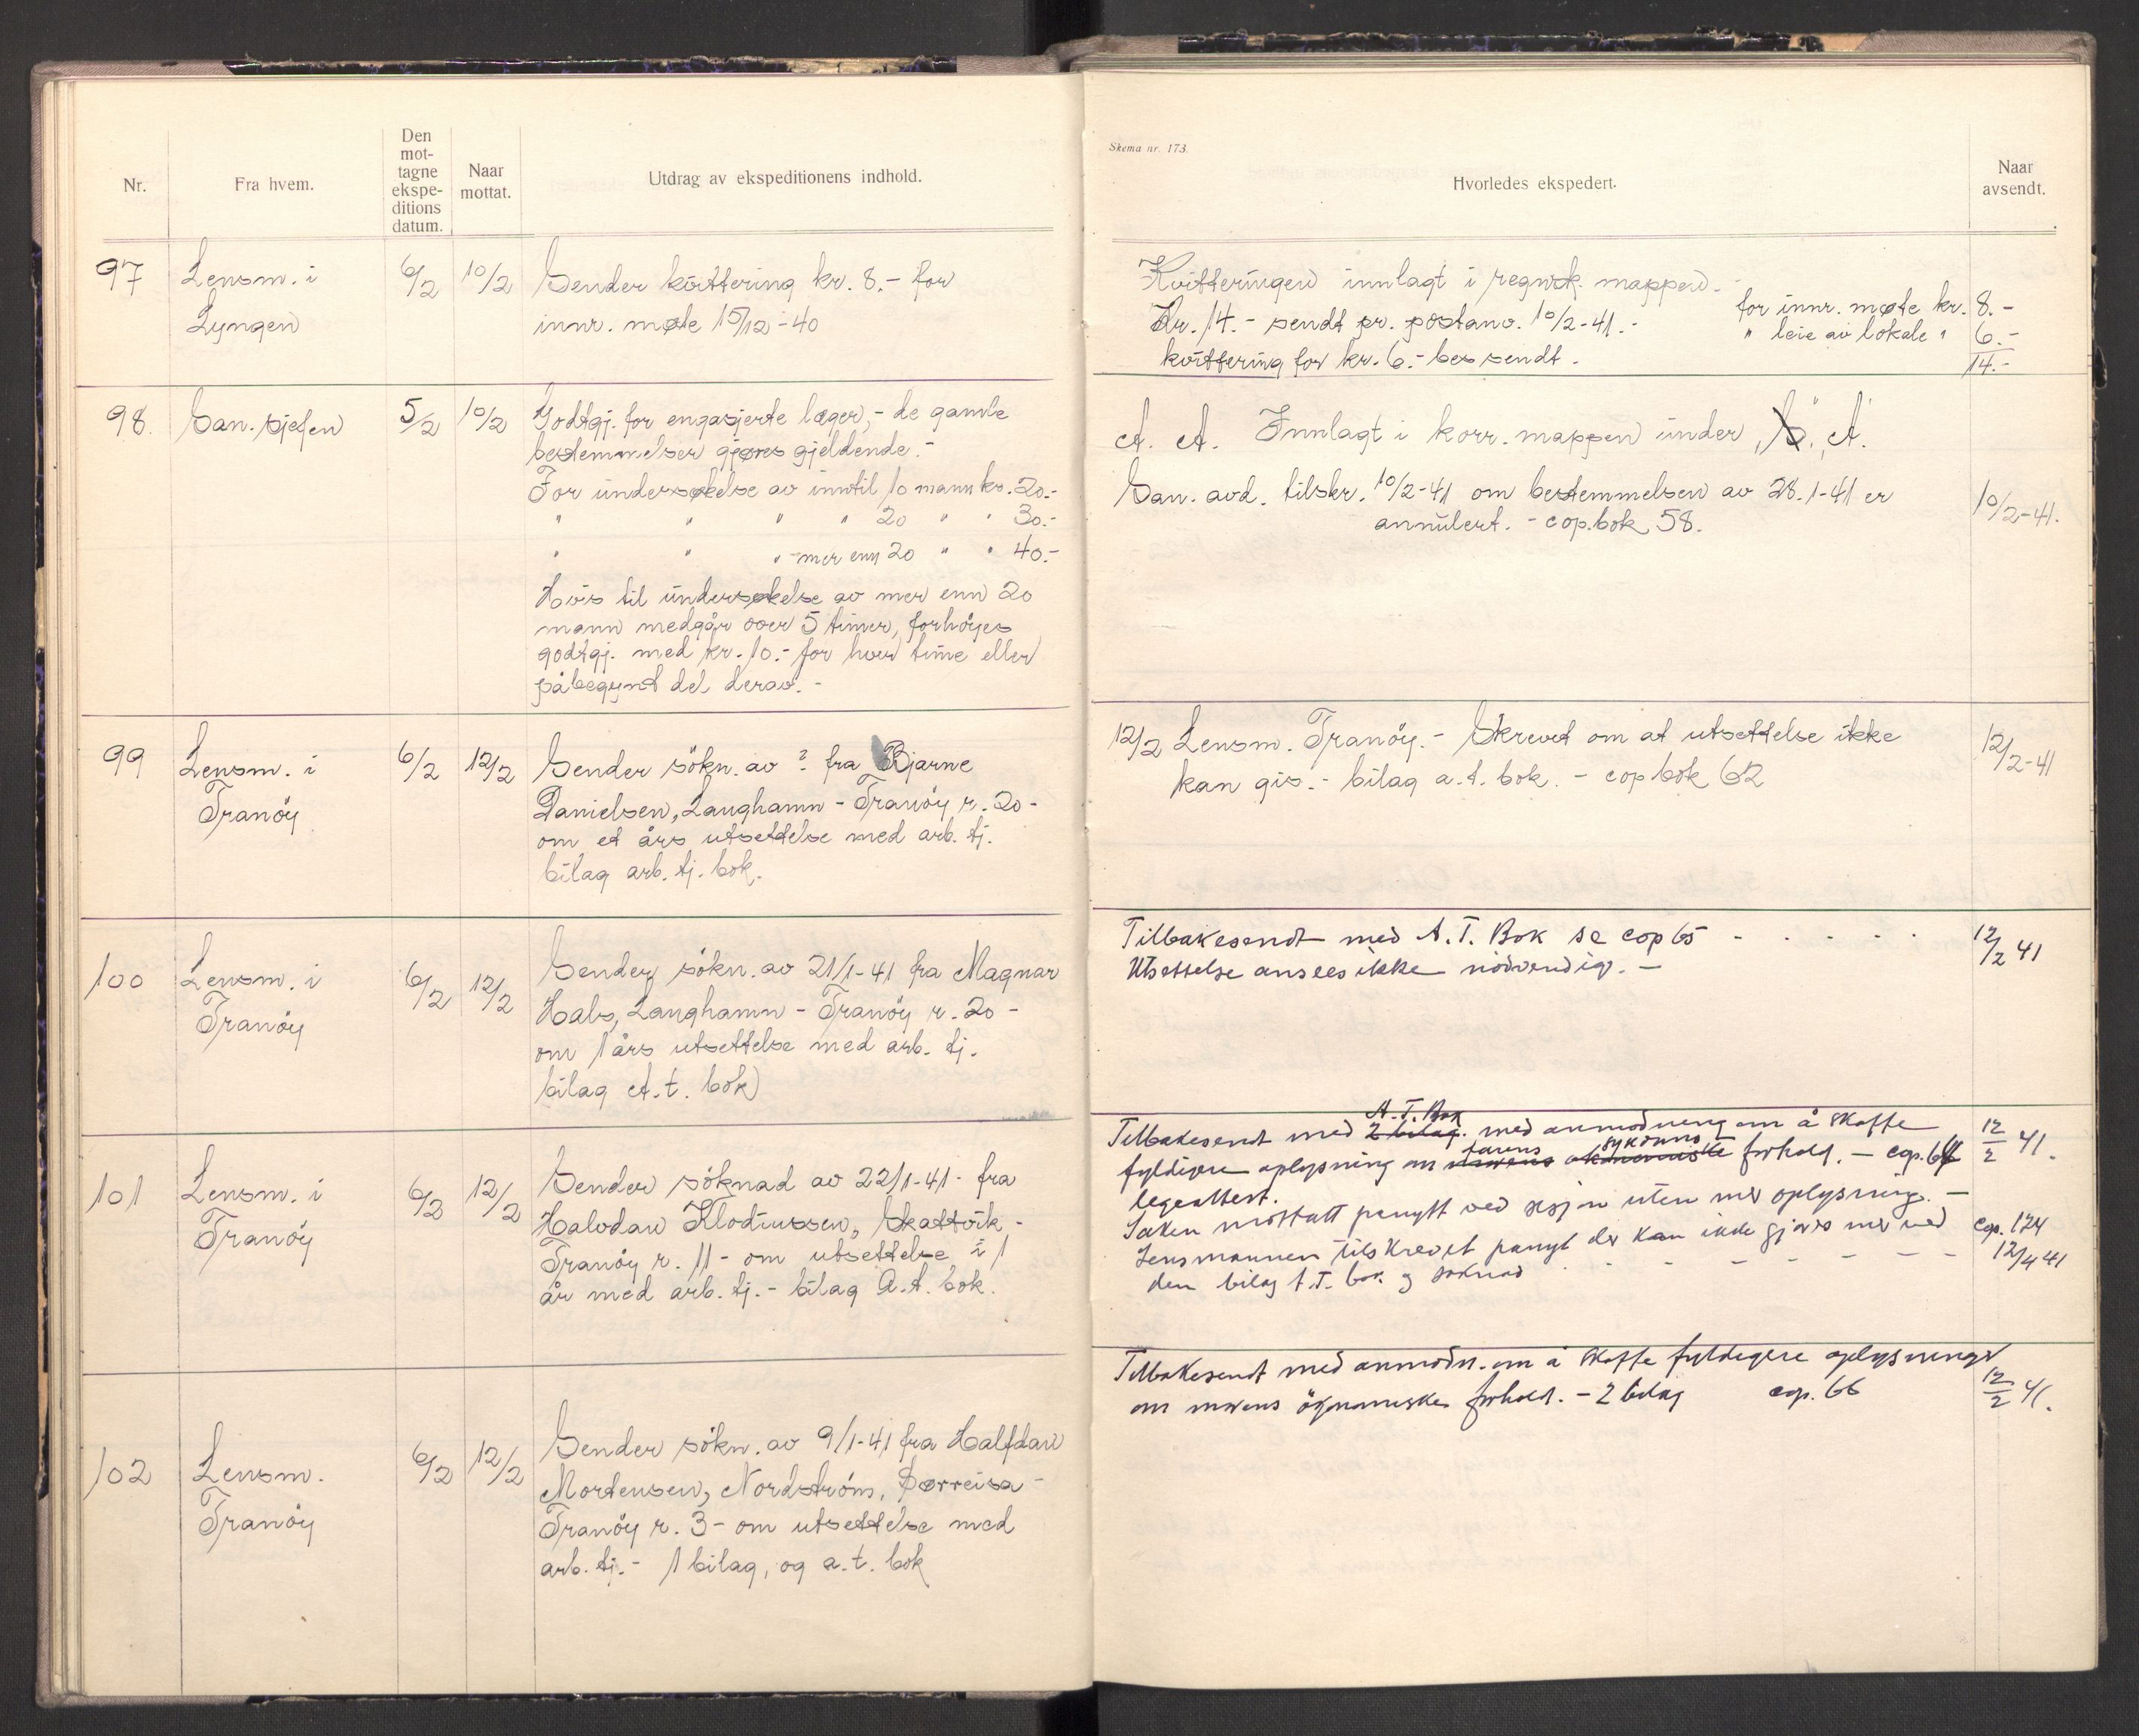 Nr.
Fra hvem.
Den
mot-
tagne
ekspe-
ditions
datum.
Naar
mottat.
Utdrag av ekspeditionens indhold.
97
Lensm. i
Lyngen
6/2
10/2
Sender kvittering kr. 8.- for
innr. møte 15/12-40
98.
San. sjefen
5/2
10/2
Godtgj. for engasjerte læger, - de gamle
bestemmelser gjøres gjeldende. -
For undersøkelse av inntil 10 mann kr. 20.-
" " " " 20 " " 30.-
" " " mer enn 20 " " 40.-
Hvis til undersøkelse av mer enn 20
mann medgår over 5 timer, forhöyes
godtgj. med kr. 10.- for hver time eller
påbegynt del derav. -
99
Lensm. i
Tranöy
6/2
12/2
Sender sökn. av ? fra Bjarne
Danielsen, Langhamn - Tranöy r. 20 -
om et års utsettelse med arb. tj.
bilag arb. tj. bok.
100
Lensm. i
Tranöy
6/2
12/2
Sender sökn. av 21/1-41 fra Magnar
Hals, Langhamn - Tranöy r. 20 -
om 1 års utsettelse med arb. tj.
bilag A.t. bok
101
Lensm. i
Tranöy
6/2
12/2
Sender söknad av 22/1-41 - fra
Halvdan Klodiussen, Skatvik -
Tranöy r. 11 - om utsettelse i 1
år med arb. tj. - bilag A.t. bok.
102
Lensm.
Tranöy
6/2
12/2
Sender sökn. av 9/1-41 fra Halfdan
Mortensen, Nordström, Sørreisa -
Tranöy r. 3 - om utsettelse med
arb. tj. - 1 bilag, og a.t. bok
Skema nr. 173.
Hvorledes ekspedert.
Naar
avsendt.
Kvitteringen innlagt i regnsk. mappen. -
for innr. møte kr. 8.-
Kr. 14.- sendt pr. postanv. 10/2-41. -
" leie av lokale " 6.-
kvittering for kr. 6.- bes sendt.
14.-
A. A. Innlagt i korr. mappen under "S" "A"
San. avd. tilskr. 10/2-41 om bestemmelsen av 28.1-41 er
annulert. - cop.bok 58.
10/2-41.
12/2 Lensm. Tranöy. - Skrevet om at utsettelse ikke
kan gis. - bilag a.t. bok. - cop bok 62
12/2-41
Tilbakesendt med A.T. Bok se cop 65 - . - . - .
Utsettelse ansees ikke nödvendig. -
12/2 41
A.T. Bok
Tilbakesendt med 2 bilag. med anmodning om å skaffe
12/2 41.
farens sykdoms
fyldigere oplysning om økonomiske forhold. - cop. 64
legeattest.
Saken mottatt panytt ved sesjon uten mer oplysning. -
Lensmannen tilskrevet panyt der kan ikke gjøres mer ved
cop. 124
den bilag A.T. bok og söknad - - - - -
12/4 41
Tilbakesendt med anmodn. om å skaffe fyldigere oplysninger
om økonomiske forhold. - 2 bilag cop. 66
12/2 41.